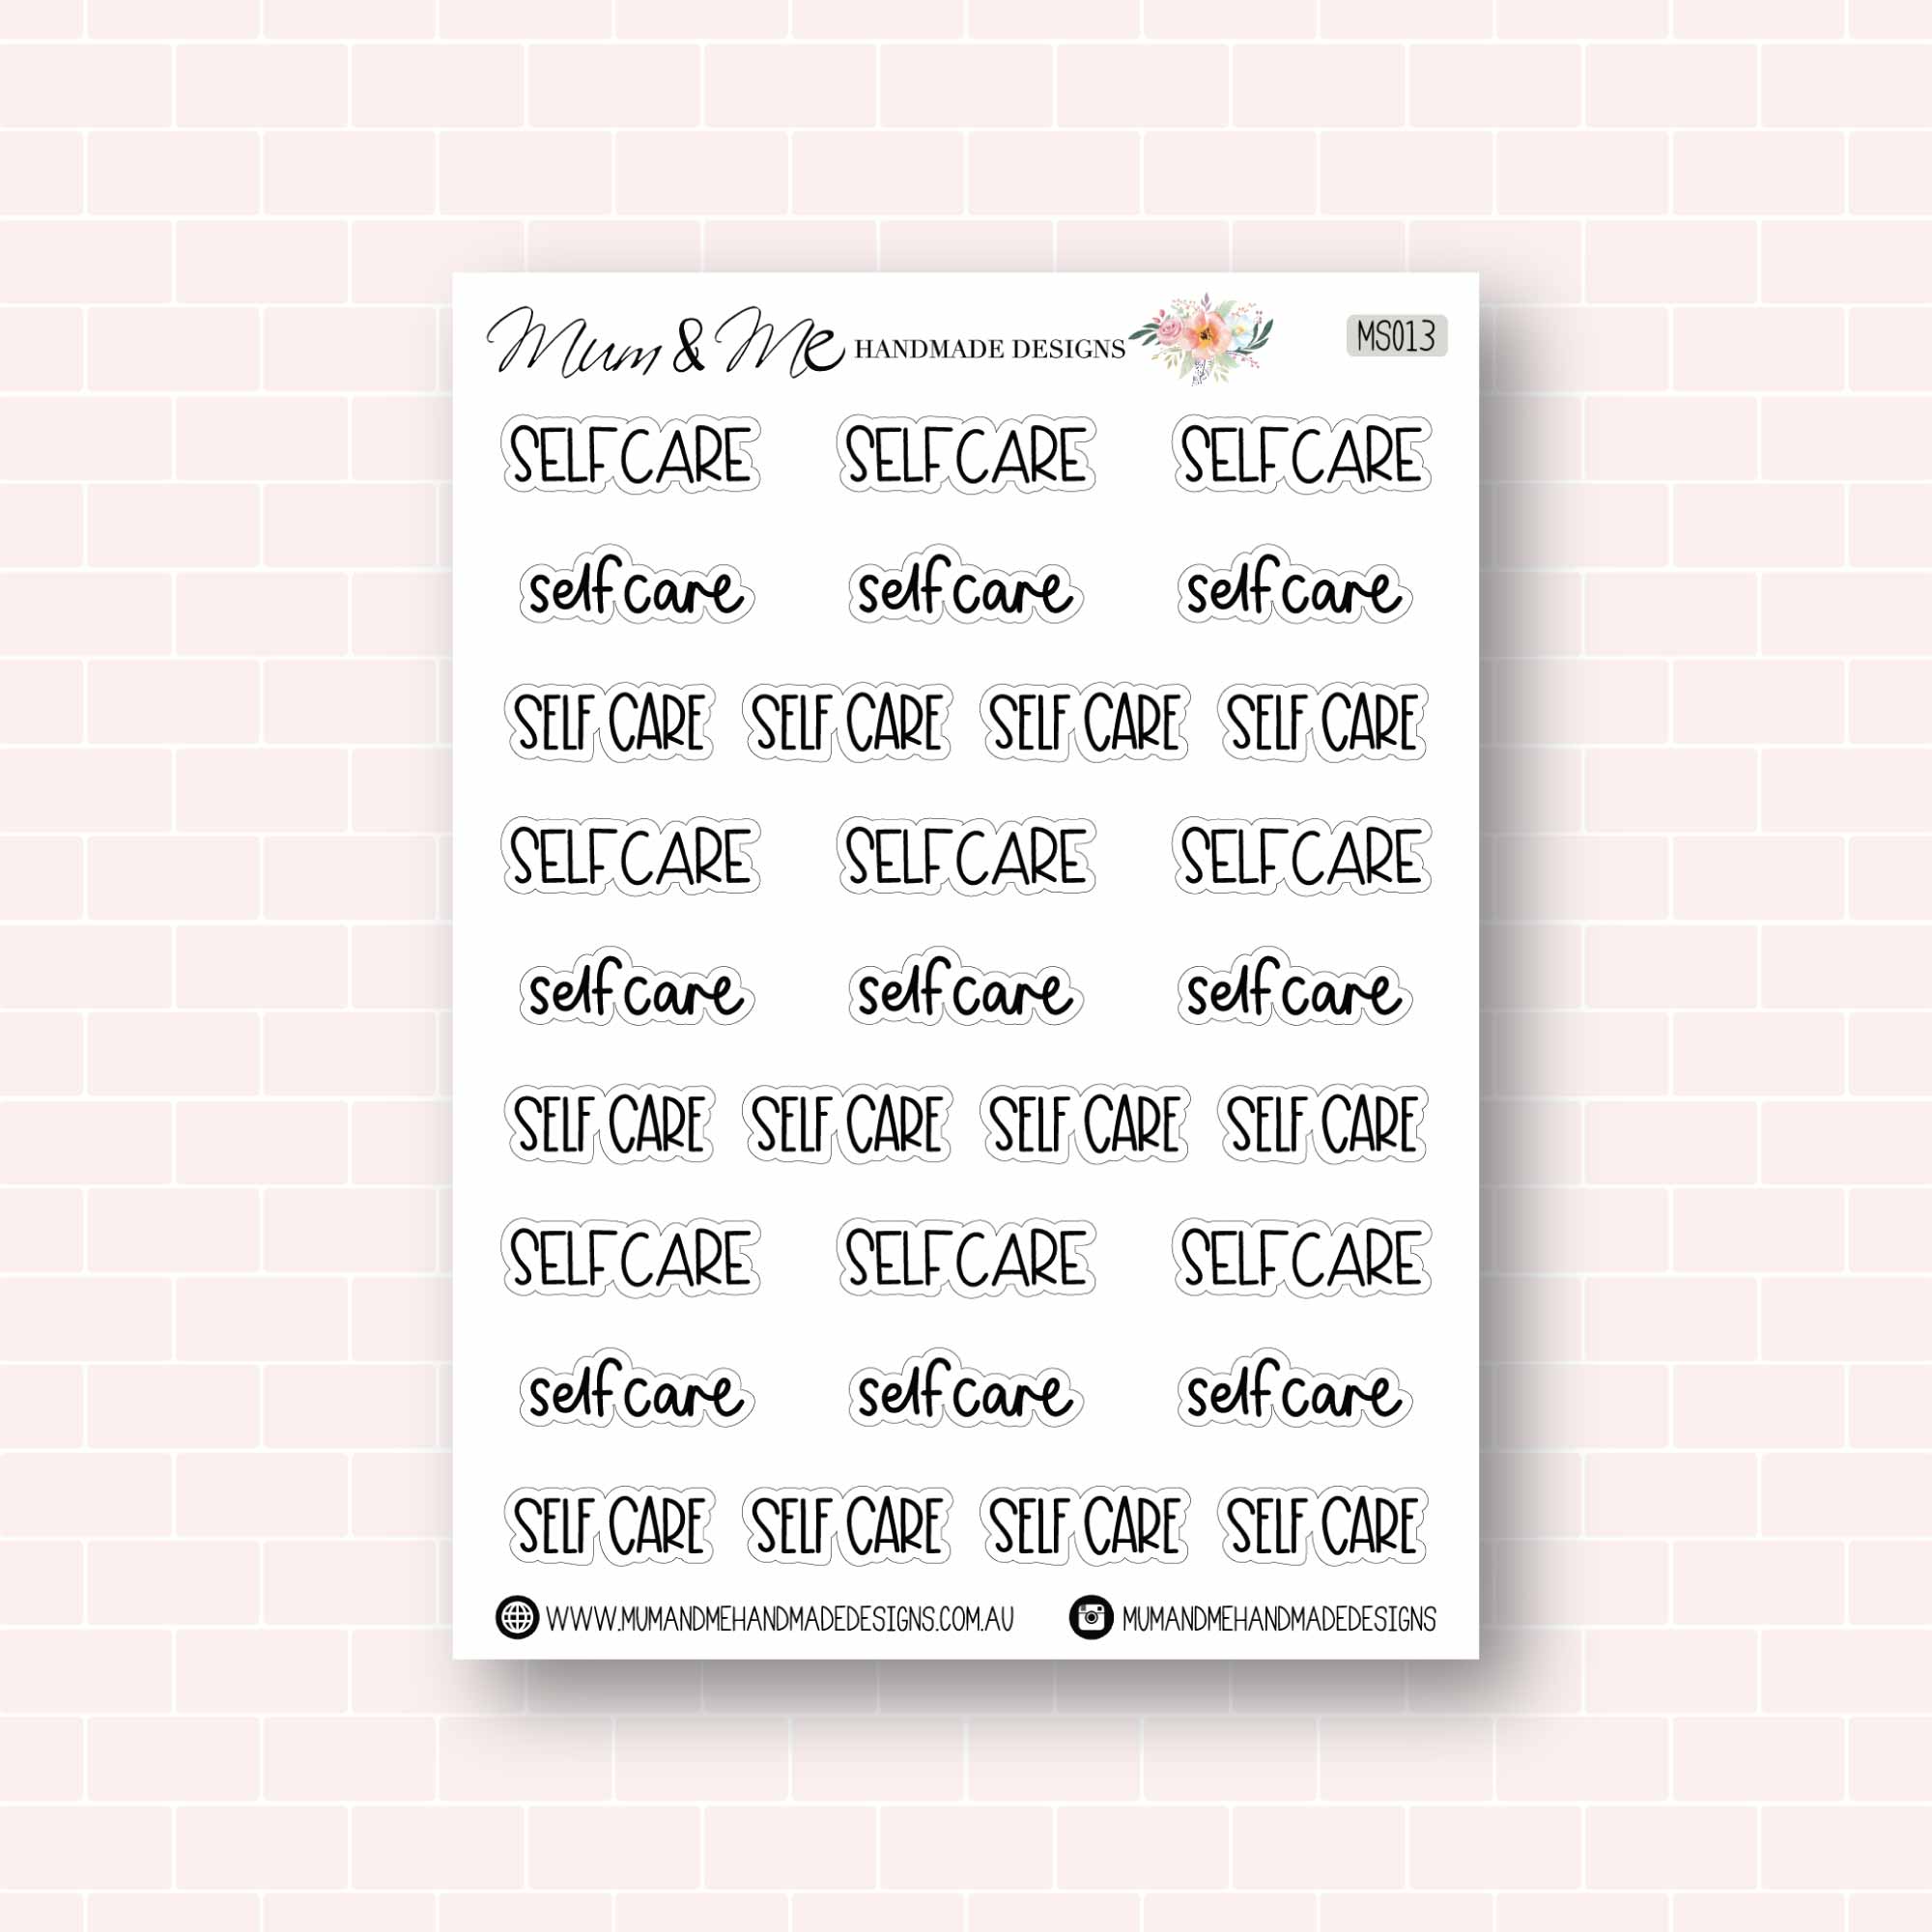 Mum & Me HANDMADE DESIGNS MS013
SELF CARE SELF CARE SELF CARE
self care self care self care
SELF CARE SELF CARE SELF CARE SELF CARE
SELF CARE SELF CARE SELF CARE
self care self care self care
SELF CARE SELF CARE SELF CARE SELF CARE
SELF CARE SELF CARE SELF CARE
self care self care self care
SELF CARE SELF CARE SELF CARE SELF CARE
WWW.MUMANDMEHANDMADEDESIGNS.COM.AU MUMANDMEHANDMADEDESIGNS